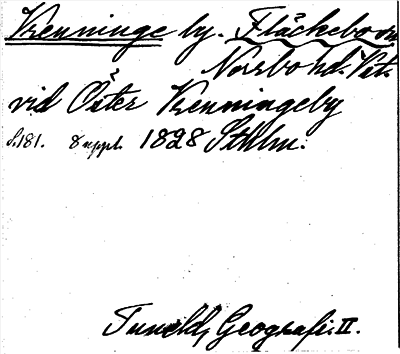 Krenninge by. Fläckebo sn
Norrbo hd. Vstm.
vid Öster Krenningeby
S. 181. 8 uppl. 1828 Sthlm.
Tuneld, Geografi. II.